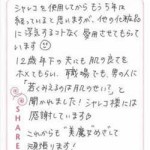 シャレコを使用してからもう5年は
経っていると思いますが、他の化粧品
に浮気することなく愛用させてもらって
います
12歳年下の夫にも肌が良でも
ホメてもらい、職場でも、男の人に
「若く見えるのは肌のせい?」と
聞かれました!シャレコ様には
感謝しています
これからも"美魔女"めざして
頑張ります!
SHARE